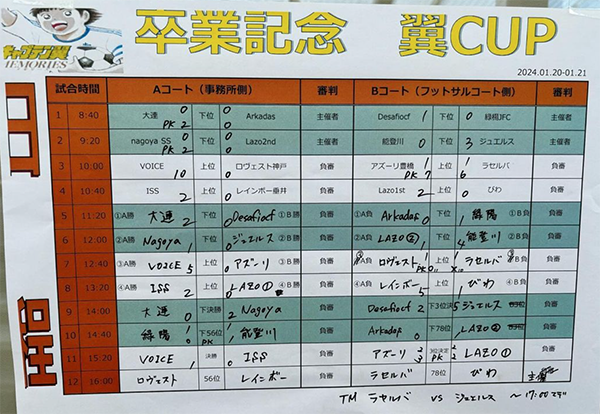 卒業記念 翼CUP
キャプテン翼
MEMORIES
2024.01.20-01.21
試合時間 Aコート（事務所側） 審判 Bコート（フットサルコート側） 審判
1 8:40 大連 0 PK 2 下位 0 0 Arkadas 主催者 Desafiocf 1 下位 0 緑楊JFC 主催者
2 9:20 nagoya SS 0 PK 2 下位 0 0 Lazo2nd 主催者 能登川 0 下位 3 ジュエルス 主催者
3 10:00 VOICE 10 上位 0 ロヴェスト神戸 負審 アズーリ豊橋 1 PK 7 上位 1 6 ラセルバ 負審
4 10:40 ISS 2 上位 0 レインボー垂井 負審 Lazo1st 2 上位 0 びわ 負審
5 11:20 ①A勝 大連 2 下位 0 Desafiocf ①B勝 負審 ①A負 Arkadas 0 下位 1 緑陽 ①B負 負審
6 12:00 ②A勝 Nagoya 1 下位 0 ジュエルス ②B勝 負審 ②A負 LAZO② 1 下位 4 能登川 ②B負 負審
7 12:40 ③A勝 VOICE 5 上位 0 アズーリ ③B勝 負審 ロヴェスト 1 PK 上位 1 ラセルバ 負審
8 13:20 ④A勝 ISS 2 上位 0 LAZO① ④B勝 負審 ④A負 レインボー 5 上位 1 びわ ④B負 負審
9 14:00 大連 0 下決勝 2 Nagoya 負審 Desafiocf 2 下3位決 5 ジュエルス 負審
10 14:40 緑陽 1 0 下56位 1 1 能登川 負審 Arkadas 0 下78位 1 LAZO② 負審
11 15:20 VOICE 1 決勝 1 ISS 負審 アズーリ 2 3 3位決定 PK 2 2 LAZO① 負審
12 16:00 ロヴェスト 56位 レインボー 負審 ラセルバ 78位 びわ 主催者
TM ラセルバ VS ジュエルス 〜17:00マデ